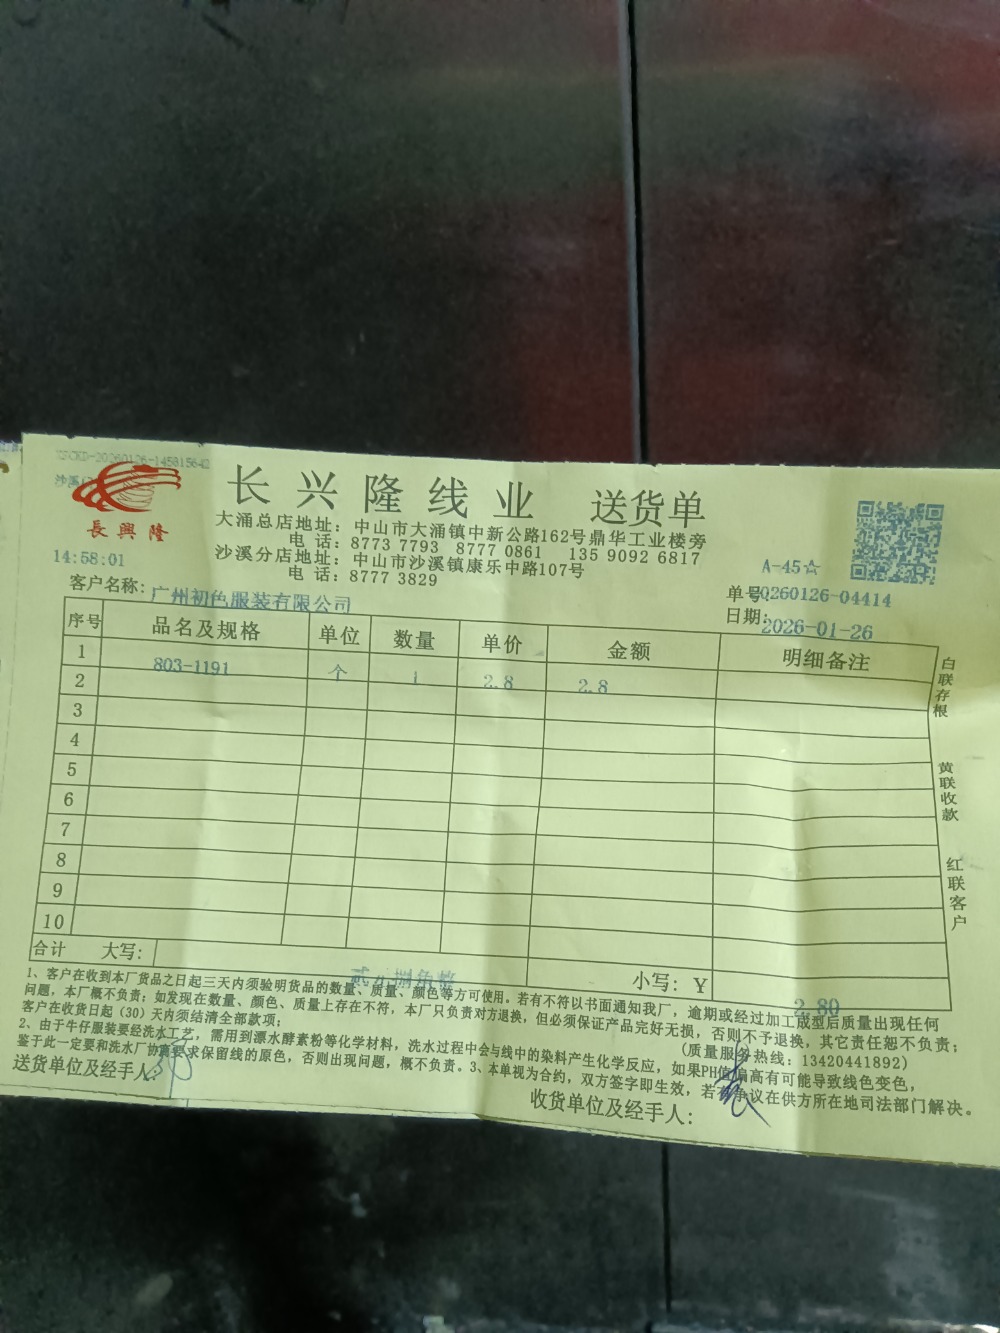 XSCKD-20260126-145815642
長興隆
14:58:01
长兴隆线业 送货单
大涌总店地址：中山市大涌镇中新公路162号鼎华工业楼旁
电 话：8773 7793 8777 0861 135 9092 6817
沙溪分店地址：中山市沙溪镇康乐中路107号
电 话：8777 3829
A-45☆
客户名称：广州初色服装有限公司
单号：20260126-04414
日期：2026-01-26
序号 品名及规格 单位 数量 单价 金额 明细备注
1 803-1191 个 1 2.8 2.8
2
3
4
5
6
7
8
9
10
合计 大写： 贰元捌角整 小写：Y 2.80
白联存根
黄联收款
红联客户
1、客户在收到本厂货品之日起三天内须验明货品的数量、质量、颜色等方可使用。若有不符以书面通知我厂，逾期或经过加工成型后质量出现任何
问题，本厂概不负责；如发现在数量、颜色、质量上存在不符，本厂只负责对方退换，但必须保证产品完好无损，否则不予退换，其它责任恕不负责；
客户在收货日起（30）天内须结清全部款项； (质量服务热线：13420441892)
2、由于牛仔服装要经洗水工艺，需用到漂水酵素粉等化学材料，洗水过程中会与线中的染料产生化学反应，如果PH值偏高有可能导致线色变色，
鉴于此一定要和洗水厂协商要求保留线的原色，否则出现问题，概不负责。3、本单视为合约，双方签字即生效，若有争议在供方所在地司法部门解决。
送货单位及经手人：
收货单位及经手人：